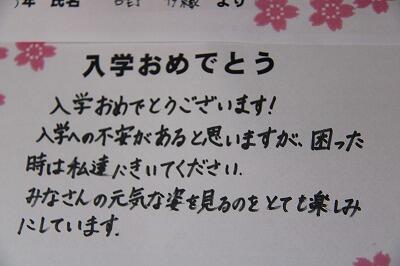 年 氏名 より
入学おめでとう
入学おめでとうございます!
入学への不安があると思いますが、困った
時は私達にきいてください.
みなさんの元気な姿を見るのをとても楽しみ
にしています.